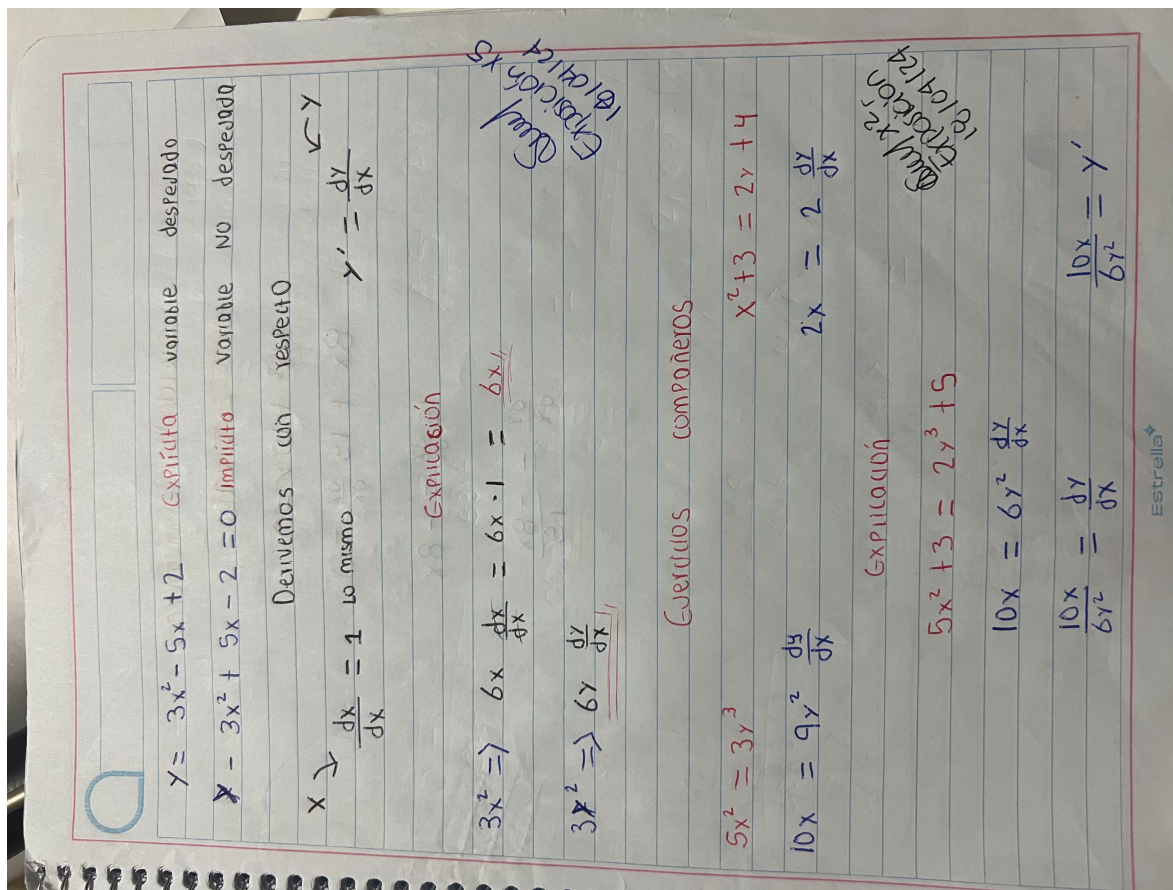 y = 3x² - 5x + 2 Explícita variable despejado
y - 3x² + 5x - 2 = 0 Implícito variable NO despejada
Derivemos con respecto
x dx/dx = 1 Lo mismo y' = dy/dx y
Explicasión
3x² => 6x dx/dx = 6x · 1 = 6x
3y² => 6y dy/dx
Exposición x5
18/04/24
Ejercicios compañeros
5x² = 3y³ x² + 3 = 2y + 4
10x = 9y² dy/dx 2x = 2 dy/dx
Explicación
x2
Exposición
18/04/24
5x² + 3 = 2y³ + 5
10x = 6y² dy/dx
10x/6y² = dy/dx 10x/6y² = y'
Estrella